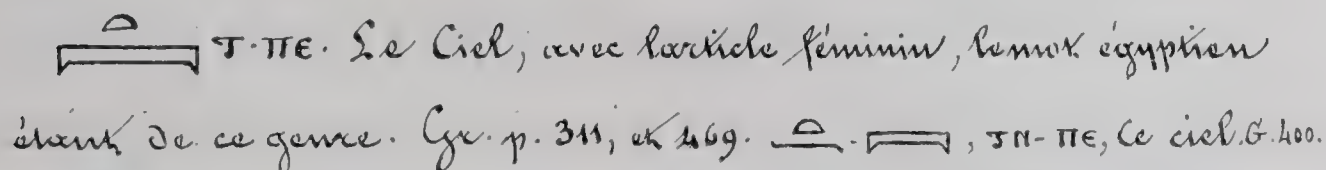 𓏏𓇯 Ⲧ·ⲠⲈ. Le Ciel, avec l'article féminin, le mot égyptien
étant de ce genre. Gr. p. 311, et 469. 𓏏𓈖.𓇯, ⲦⲚ-ⲠⲈ, Ce ciel. G. 400.